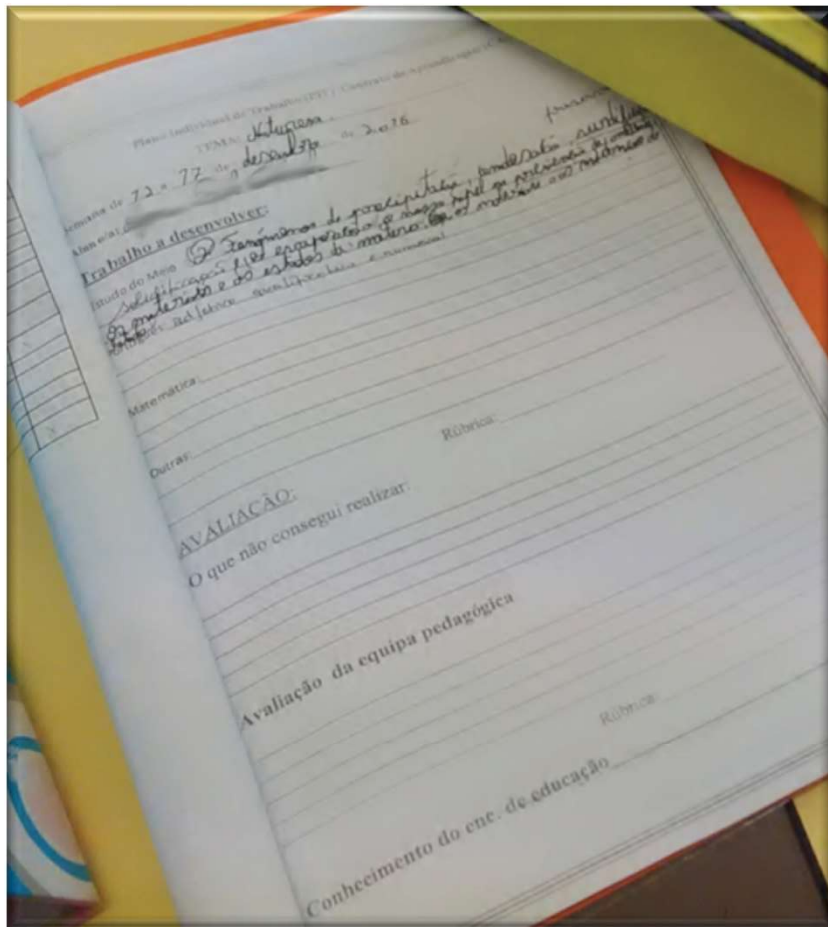 Plano Individual de Trabalho (PIT) | Contrato de Aprendizagem
TEMA: Natureza
Semana de 12 a 17 de dezembro de 2016
Aluno/a:
Trabalho a desenvolver:
Estudo do Meio Fenómenos de precipitação, condensação,
solidificação e evaporação o nosso papel na
os materiais e os estados da matéria os materiais
Português: adjetivo qualificativo e numeral
Matemática:
Outras:
Rúbrica:
AVALIAÇÃO:
O que não consegui realizar:
Avaliação da equipa pedagógica
Rúbrica:
Conhecimento do enc. de educação